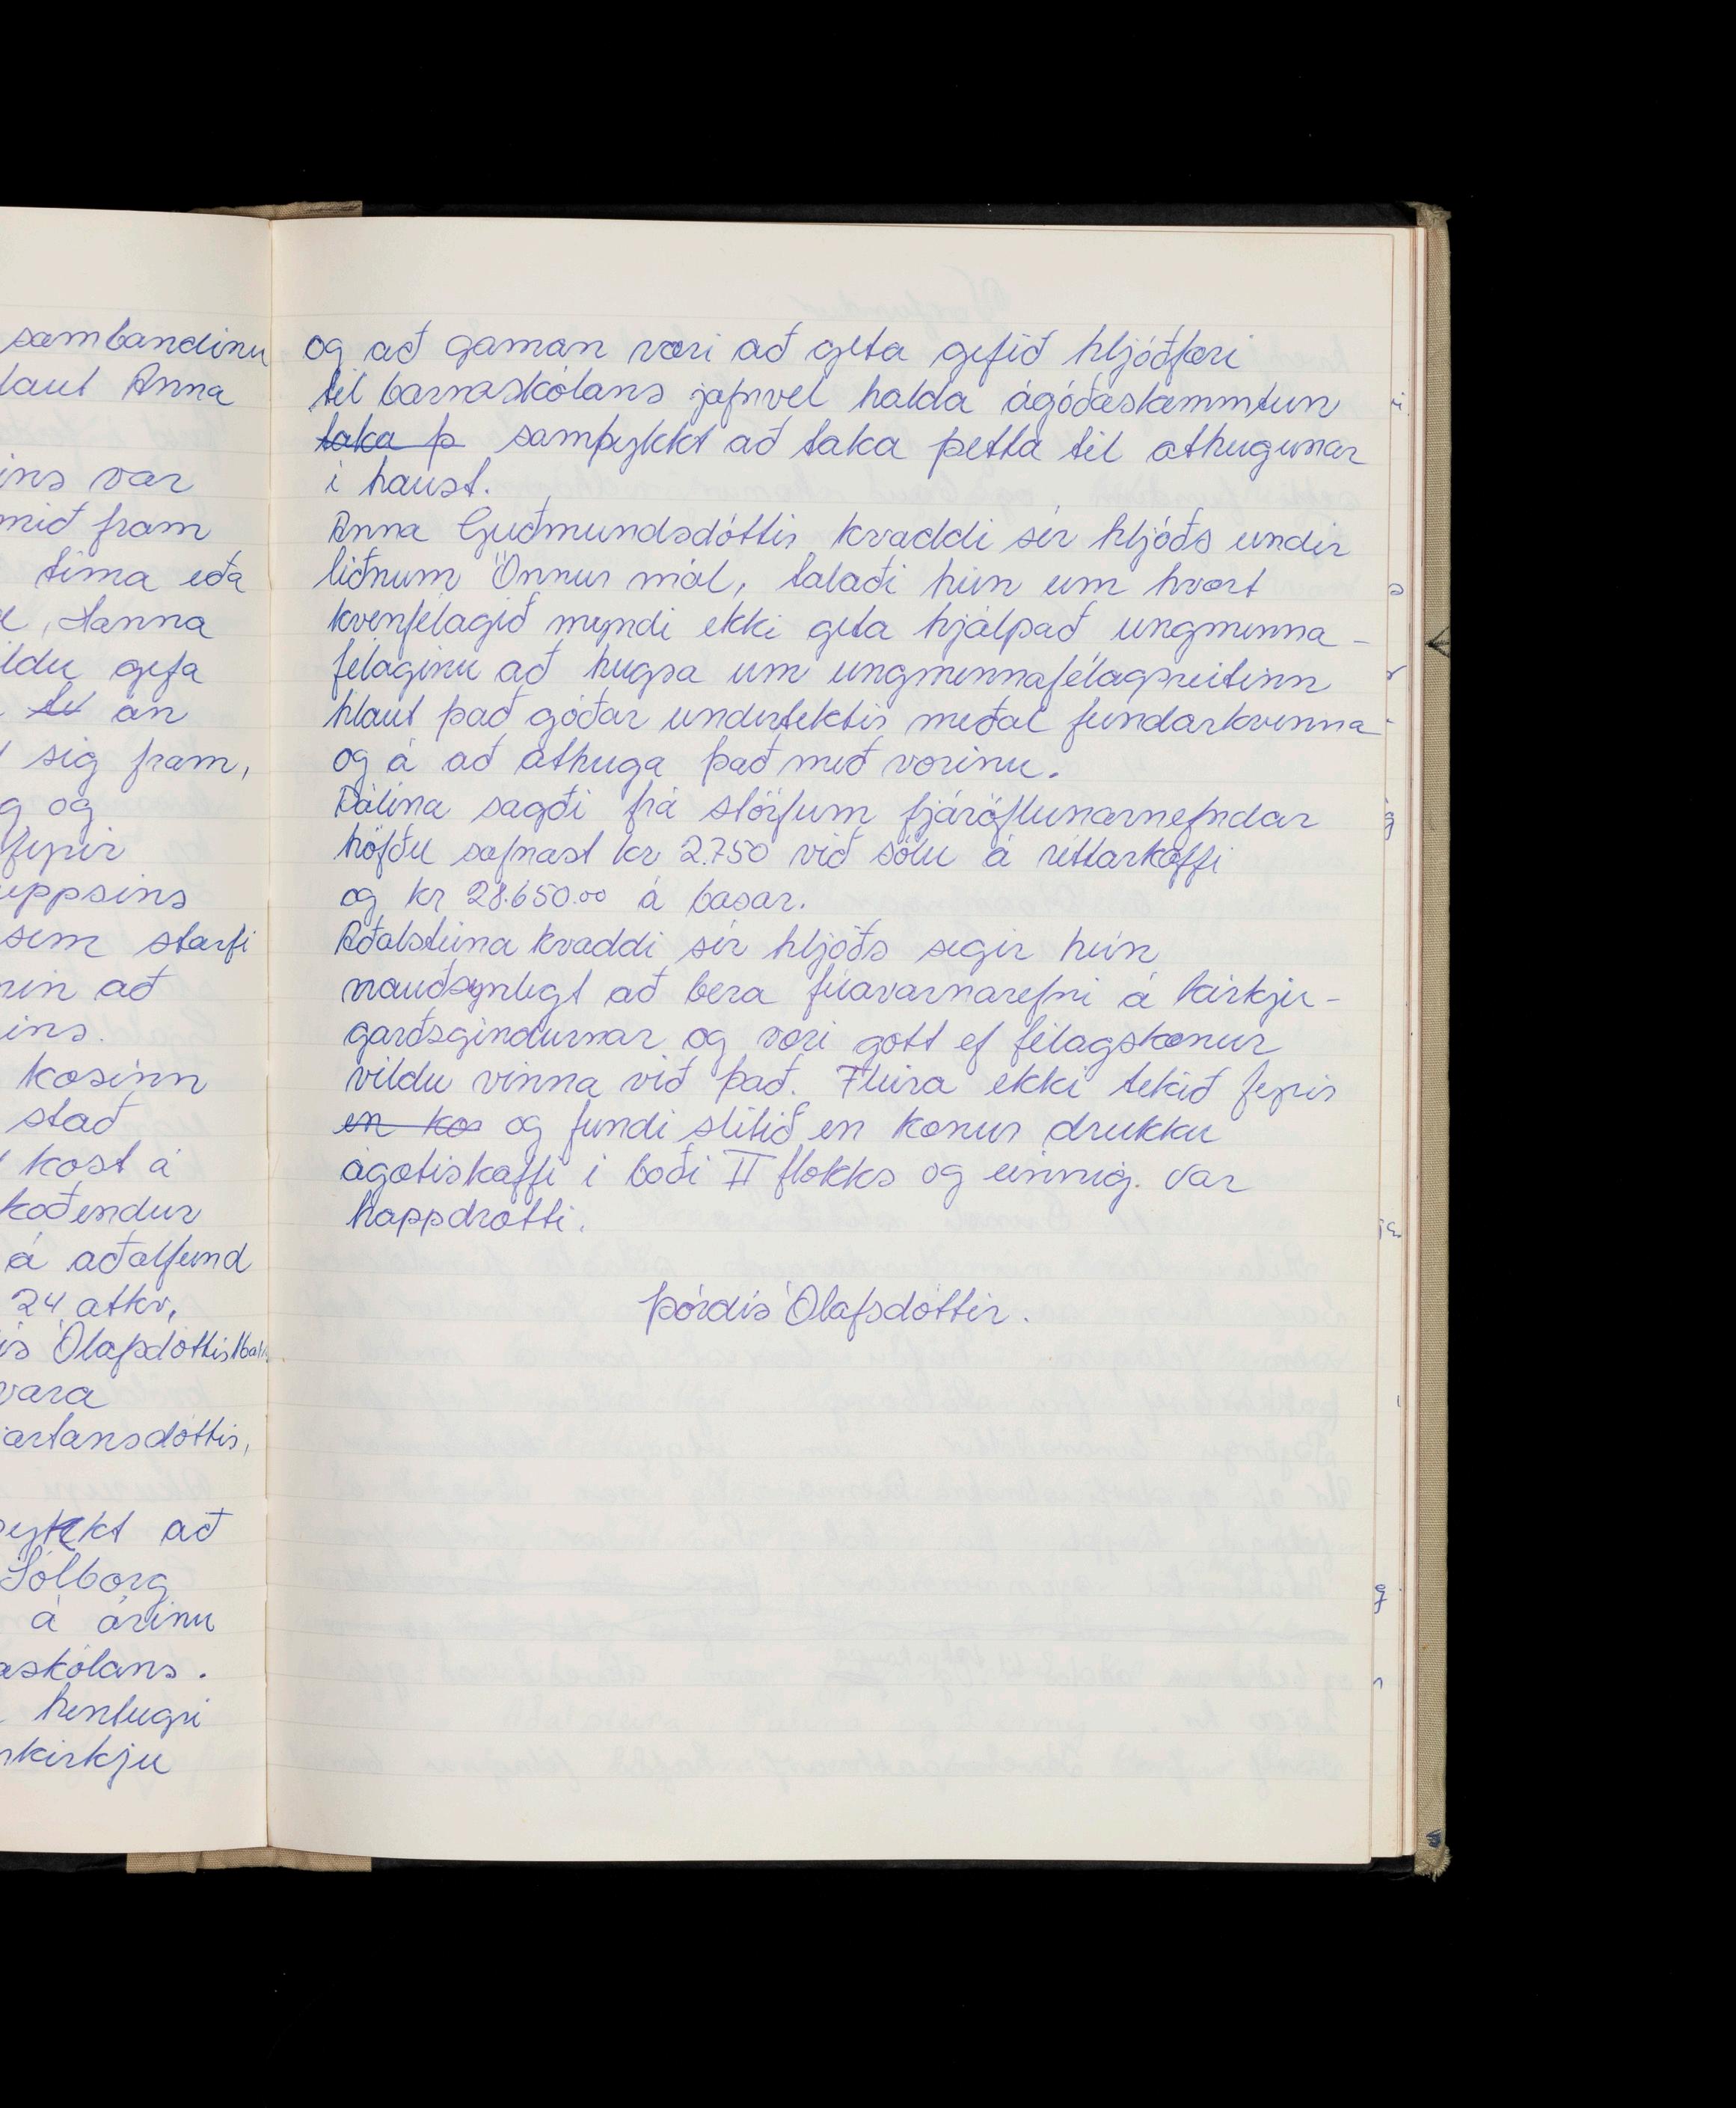 sambandinu
laut Anna
ins var
mið fram
tíma eða
Hanna
ildu gefa
án
sig fram,
g og
fyrir
uppsins
sem starfi
nin að
ins.
kosinn
stað
kost á
koðendur
á aðalfund
24 atkv,
is Ólafsdóttir
vara
artansdóttir,
ykkt að
Sólborg
á árinu
askólans.
hentugri
rkirkju
og að gaman væri að geta gefið hljóðfæri
til barnaskólans jafnvel halda ágóðaskemmtun
taka þ samþykkt að taka þetta til athugunar
í haust.
Anna Guðmundsdóttir kvaddi sér hljóðs undir
liðnum Önnur mál, talaði hún um hvort
kvenfélagið myndi ekki geta hjálpað ungmenna-
félaginu að hugsa um ungmennafélagsreitinn
hlaut það góðar undirtektir meðal fundarkvenna
og á að athuga það með vorinu.
Pálína sagði frá störfum fjáröflunarnefndar
höfðu safnast kr 2.750 við sölu á réttarkaffi
og kr 28.650.00 á basar.
Aðalsteina kvaddi sér hljóðs segir hún
nauðsynlegt að bera fúavarnarefni á kirkju-
garðsgindurnar og væri gott ef félagskonur
vildu vinna við það. Fleira ekki tekið fyrir
en ko og fundi slitið en konur drukku
ágætiskaffi í boði II flokks og einnig. var
happdrætti.
Þórdís Ólafsdóttir.